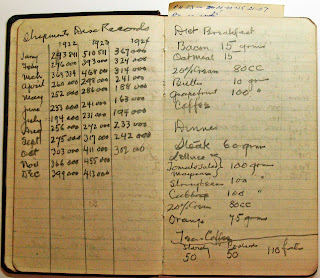 Shipments Disc Records
1922 1923 1924
Jany 293 841 510 511 367 000
Feby 296 000 393 000 324 000
Mch 369 314 468 000 314 000
April 260 000 298 000 241 000
May 252 000 286 000 188 000
June 253 000 241 000 168 000
July 194 000 231 000 194 000
Aug 256 000 242 000 233 000
Sept 295 000 317 000 242 000
Oct 303 000 411 000 302 000
Nov 366 000 455 000
Dec 399 000 413 000
Diet Breakfast
Bacon 15 grams
Oatmeal 15
20% Cream 80 CC
Butter 10 gm
Grapefruit 100 "
Coffee
Dinner
Steak 60 grams
Lettuce
Tomato Salad 100 grams
Mayonaise
Strawberries 100
Cabbage 100 "
20% Cream 80 CC
Orange 75 grams
Tea - Coffee
50 50 110